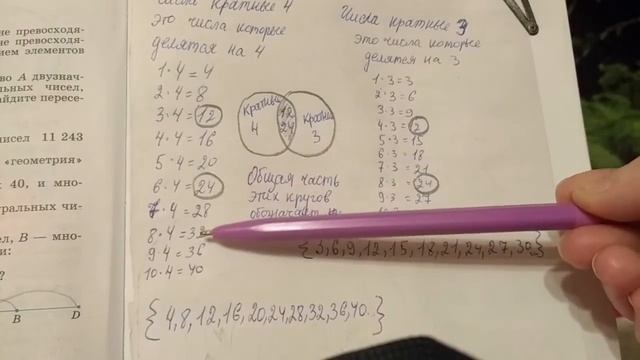 ие превосходя-
ие превосходя-
ием элементов
во A двузнач-
льных чисел,
айдите пересе-
исел 11 243
«геометрия»
40, и мно-
ральных чи-
ел, B — мно-
и:
?
B D
числа кратные 4
это числа которые
делятся на 4
1·4=4
2·4=8
3·4=12
4·4=16
5·4=20
6·4=24
7·4=28
8·4=32
9 4=36
10·4=40
{4,8,12,16,20,24,28,32,36,40.}
Кратные
4
12
24
Кратные
3
Общая часть
этих кругов
обозначает
Числа кратные 3
это числа которые
делятся на 3
1·3=3
2·3=6
3·3=9
4·3=12
5·3=15
6·3=18
7·3=21
8·3=24
9·3=27
{3,6,9,12,15,18,21,24,27,30}